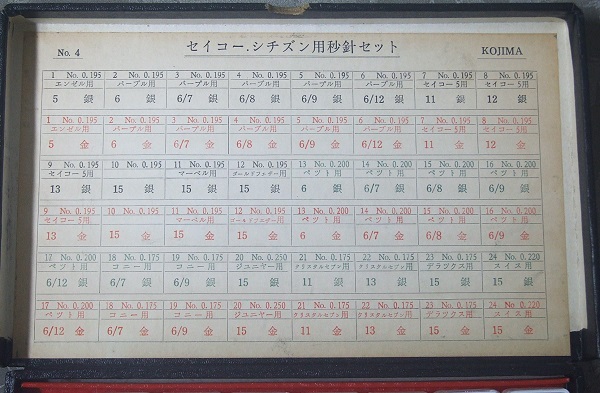 No. 4 セイコー.シチズン用秒針セット KOJIMA
1 No. 0.195 2 No. 0.195 3 No. 0.195 4 No. 0.195 5 No. 0.195 6 No. 0.195 7 No. 0.195 8 No. 0.195
エンゼル用 パーブル用 パーブル用 パーブル用 パーブル用 パーブル用 セイコー5用 セイコー5用
5 銀 6 銀 6/7 銀 6/8 銀 6/9 銀 6/12 銀 11 銀 12 銀
1 No. 0.195 2 No. 0.195 3 No. 0.195 4 No. 0.195 5 No. 0.195 6 No. 0.195 7 No. 0.195 8 No. 0.195
エンゼル用 パーブル用 パーブル用 パーブル用 パーブル用 パーブル用 セイコー5用 セイコー5用
5 金 6 金 6/7 金 6/8 金 6/9 金 6/12 金 11 金 12 金
9 No. 0.195 10 No. 0.195 11 No. 0.195 12 No. 0.195 13 No. 0.200 14 No. 0.200 15 No. 0.200 16 No. 0.200
セイコー5用 マーベル用 ゴールドフェザー用 ペット用 ペット用 ペット用 ペット用
13 銀 15 銀 15 銀 15 銀 6 銀 6/7 銀 6/8 銀 6/9 銀
9 No. 0.195 10 No. 0.195 11 No. 0.195 12 No. 0.195 13 No. 0.200 14 No. 0.200 15 No. 0.200 16 No. 0.200
セイコー5用 マーベル用 ゴールドフェザー用 ペット用 ペット用 ペット用 ペット用
13 金 15 金 15 金 15 金 6 金 6/7 金 6/8 金 6/9 金
17 No. 0.200 18 No. 0.175 19 No. 0.175 20 No. 0.250 21 No. 0.175 22 No. 0.175 23 No. 0.175 24 No. 0.220
ペット用 コニー用 コニー用 ジユニヤー用 クリスタルセブン用 クリスタルセブン用 デラックス用 スイス用
6/12 銀 6/7 銀 6/9 銀 15 銀 11 銀 13 銀 15 銀 15 銀
17 No. 0.200 18 No. 0.175 19 No. 0.175 20 No. 0.250 21 No. 0.175 22 No. 0.175 23 No. 0.175 24 No. 0.220
ペット用 コニー用 コニー用 ジユニヤー用 クリスタルセブン用 クリスタルセブン用 デラックス用 スイス用
6/12 金 6/7 金 6/9 金 15 金 11 金 13 金 15 金 15 金